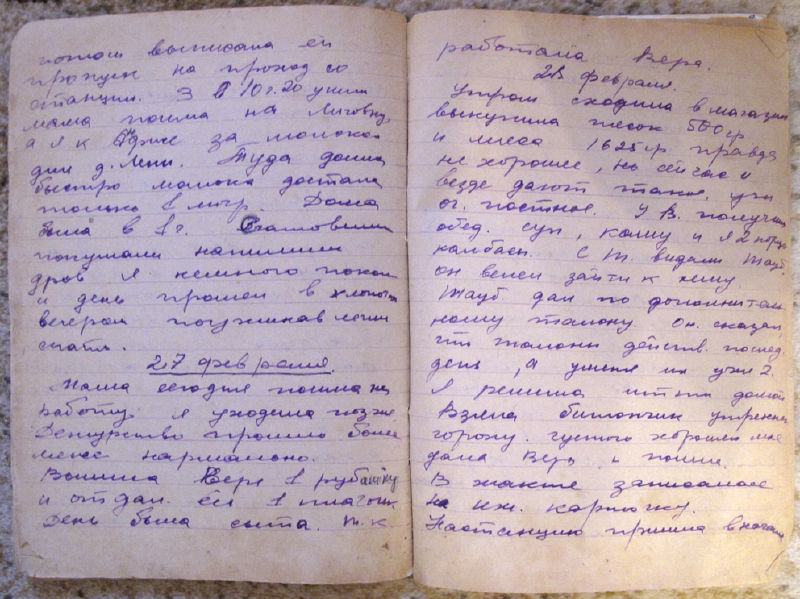 потом выписала ей
пропуск на проход со
станции. В 10 ч. 20 ушли
мама пошла на Лиговку,
а я к за молоком
для д. Лени. Туда дошла
быстро молока достала
только 1 литр. Дома
была в 1 ч.
покушали напилили
дров я немного
и день прошел в хлопотах
вечером поужинав легли
спать.
27 февраля.
Мама сегодня пошла на
работу я уходила позже
Дежурство прошло более
менее нормально.
Вере 1 рубашку
и отдал. ей 1
День была сыта. т.к
работала Вера.
28 февраля.
Утром сходила в магазин
выкупила песок 500 гр
и мяса 1625 гр правда
не хорошее, но сейчас и
везде дают такое, уж
оч. постное. У В. получила
обед. суп, кашу и я 2 порц
колбасы. С Т. видали Тауб.
он велел зайти к нему.
Тауб. дал по дополнитель
ному талону. Он сказал
что талоны действ. послед.
день, а у меня их уже 2.
Я решила идти домой
Взяла битончик утреннего
гороху. густого хорошего мне
дала Вера и пошли.
В жакте записалась
на иж. карточку.
На станцию пришла в начале